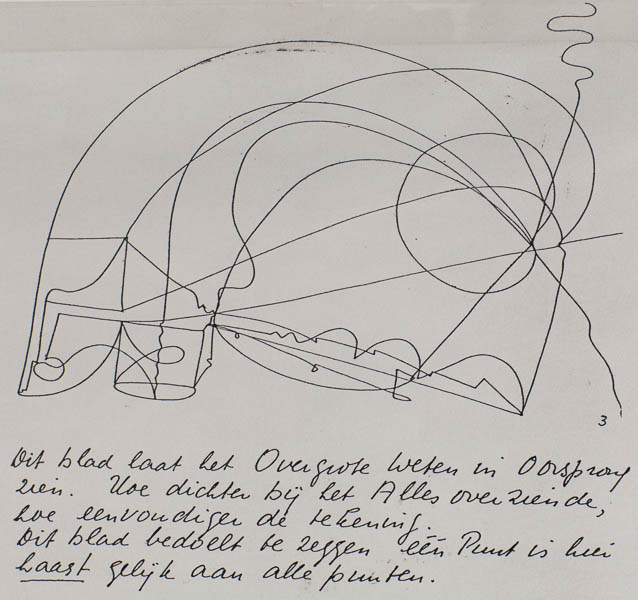 3
Dit blad laat het Overgrote Weten in Oorsprong
zien. Hoe dichter bij het Alles overziende,
hoe eenvoudiger de tekening.
Dit blad bedoelt te zeggen één Punt is hier
haast gelijk aan alle punten.